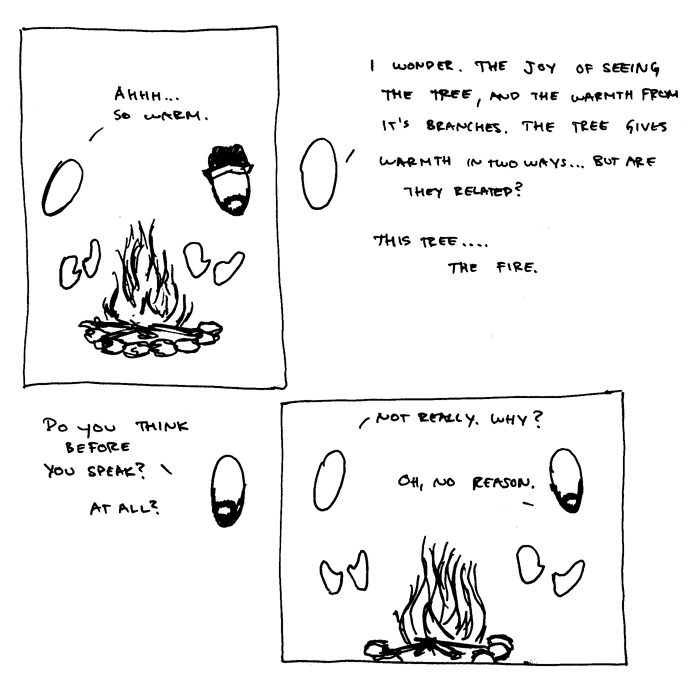 AHHH...
SO WARM.
I WONDER. THE JOY OF SEEING
THE TREE, AND THE WARMTH FROM
IT'S BRANCHES. THE TREE GIVES
WARMTH IN TWO WAYS... BUT ARE
THEY RELATED?
THIS TREE....
THE FIRE.
DO YOU THINK
BEFORE
YOU SPEAK?
AT ALL?
NOT REALLY. WHY?
OH, NO REASON.